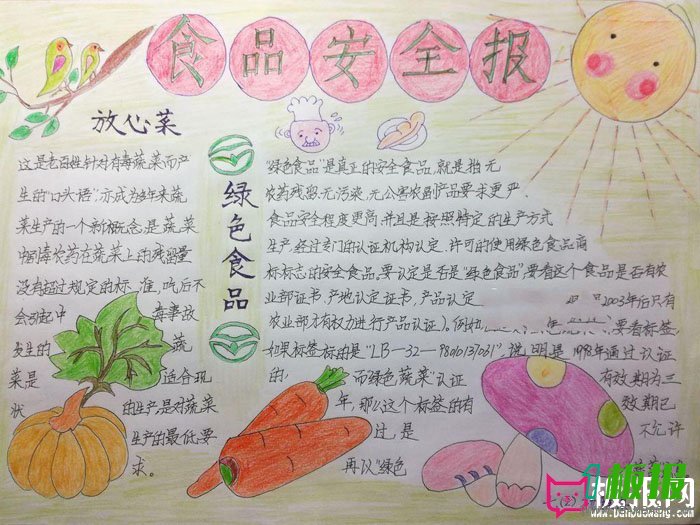 食品安全报
放心菜
这是老百姓针对有毒蔬菜而产
生的“口头语”亦成为多年来蔬
菜生产的一个新概念是蔬菜
中的毒农药在蔬菜上的残留量
没有超过规定的标准,吃后不
会引起中毒事故
发生的蔬
菜是适合现
状的生产是对蔬菜
生产的最低要
求。
绿色食品
“绿色食品”是真正的安全食品,就是指无
农药残留,无污染,无公害农副产品要求更严,
食品安全程度更高,并且是按照特定的生产方式
生产,经过专门的认证机构认定、许可的使用绿色食品商
标标志的安全食品,要认定是否是“绿色食品”要看这个食品是否有农
业部证书,产地认定证书,产品认定 2003年后只有
农业部才有权力进行产品认证)。例如 要看标签,
如果标签标的是“LB-32-9806137061”,说明是1998年通过认证
的, 而绿色蔬菜”认证 有效期为三
年,那么这个标签的有 效期已
过,是 不允许
再议“绿色
板报网
www.banbaowang.com